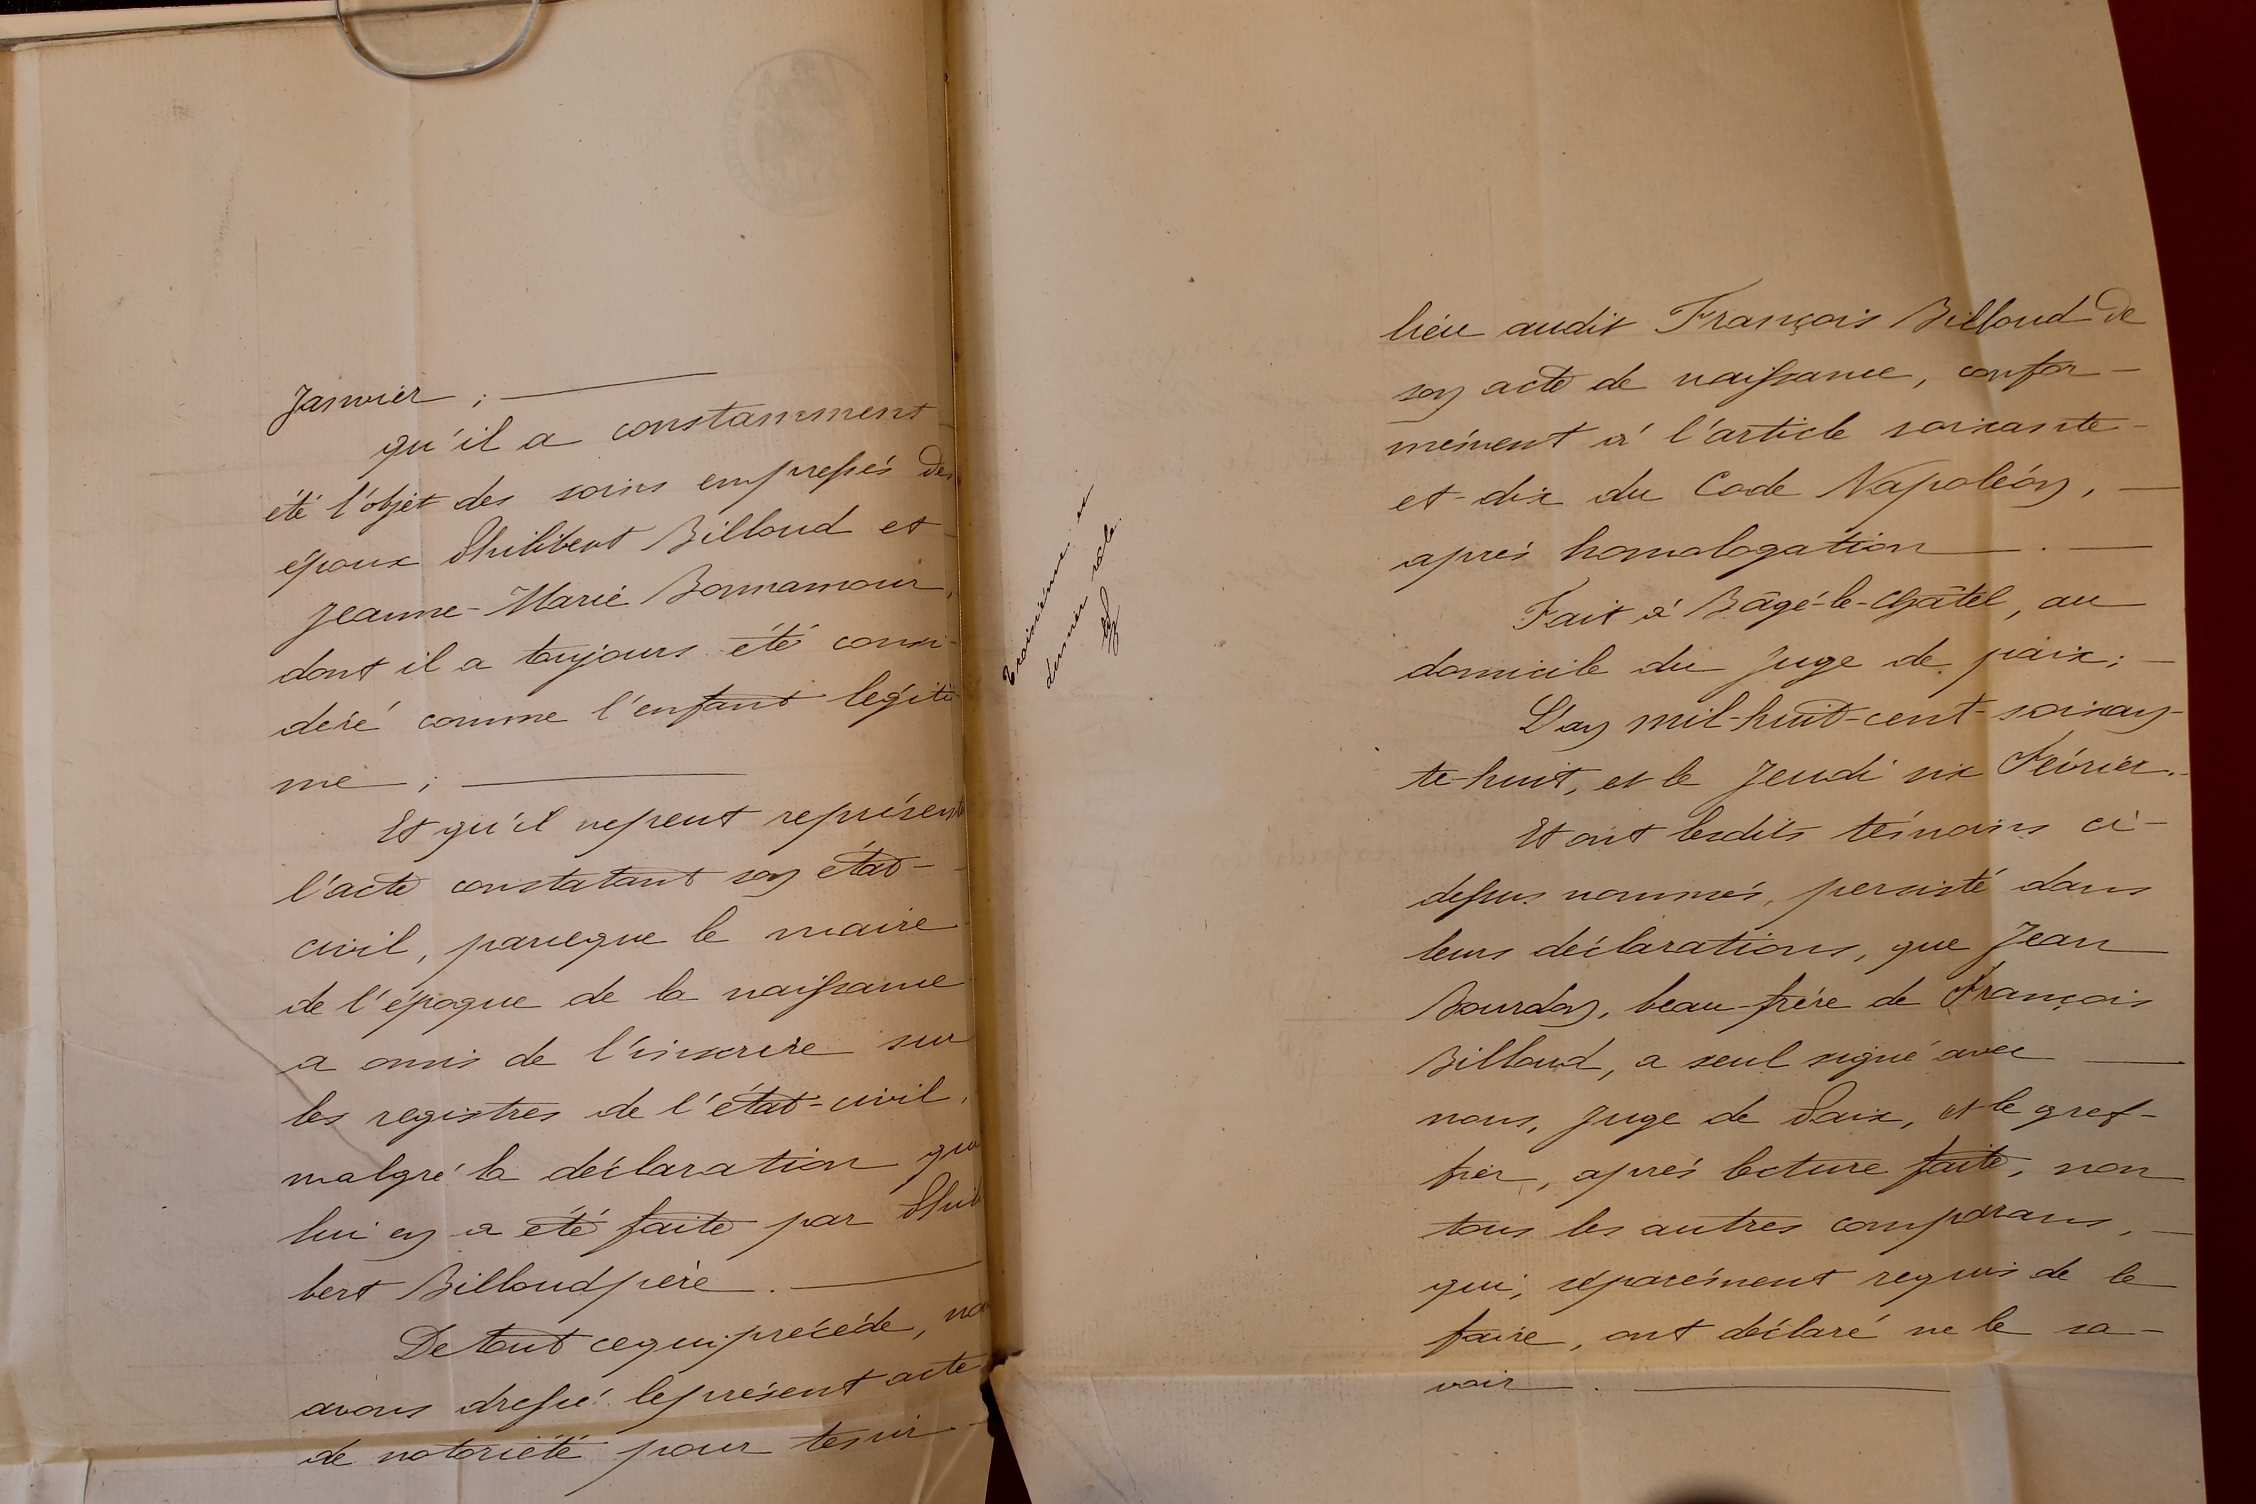 Janvier ; —
qu'il a constamment
été l'objet des soins empressés des
époux Philibert Billoud et
Jeanne-Marie Bonnamour,
dont il a toujours été consi-
déré comme l'enfant légiti
me ; —
Et qu'il ne peut représent
l'acte constatant son état-
civil, parceque le maire
de l'époque de la naissance
a omis de l'inscrire sur
les registres de l'état-civil,
malgré la déclaration qui
lui en a été faite par Phili
bert Billoud père. —
De tout ce qui précède, no
avons dressé le présent acte
de notoriété pour tenir -
Troisième et
dernier rôle.
lieu audit François Billoud de
son acte de naissance, confor-
mément à l'article soixante-
et-dix du Code Napoléon, —
après homologation — . —
Fait à Bâgé-le-Châtel, au
domicile du Juge de paix; —
L'an mil-huit-cent-soixan-
te-huit, et le Jeudi six Février.-
Et ont lesdits témoins ci-
dessus nommés, persisté dans
leurs déclarations, que Jean
Bourdon, beau-frère de François
Billoud, a seul signé avec —
nous, Juge de Paix, et le gref-
fier, après lecture faite, non
tous les autres comparans, —
qui, séparément requis de le
faire, ont déclaré ne le sa-
voir — . —